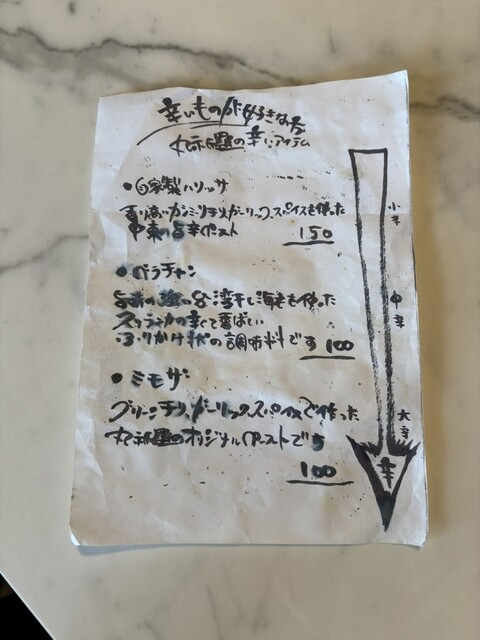 辛いものが好きな方
部屋の辛いアイテム
・自家製ハリッサ
香り高いガーリック、スパイスを使った
中東の旨辛ペースト
150
・ベラチャン
台湾干し海老を使った
スリランカの辛くて香ばしい
ふりかけ状の調味料です 100
・ミモザ
グリーンチリ、ガーリック、スパイスで作った
部屋のオリジナルペーストです
100
小辛
中辛
大辛
辛